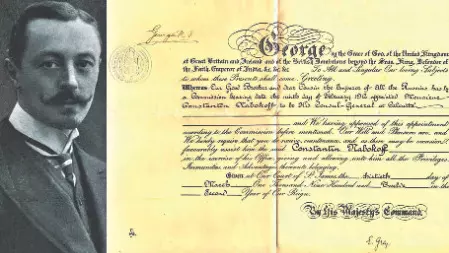 George R. I.
George by the Grace of God, of the United Kingdom
of Great Britain and Ireland and of the British Dominions beyond the Seas, King, Defender of
the Faith, Emperor of India, &c. &c. &c. To All and Singular Our loving Subjects
to whom these Presents shall come, Greeting,
Whereas Our Good Brother and dear Cousin the Emperor of All the Russias has by
a Commission bearing date the day of appointed Monsieur
Constantin Nabokoff to be His Consul-General at Calcutta
and We having approved of this appointment
according to the Commission before mentioned, Our Will and Pleasure are, and
We hereby require that you do receive, countenance, and as there may be occasion,
favourably assist him the said Constantin Nabokoff
in the exercise of his Office, giving and allowing unto him all the Privileges,
Immunities and Advantages thereunto belonging.
Given at Our Court of St. James, the day of
March One Thousand Nine Hundred and Twelve in the
Second Year of Our Reign.
By His Majesty's Command.
E. Grey